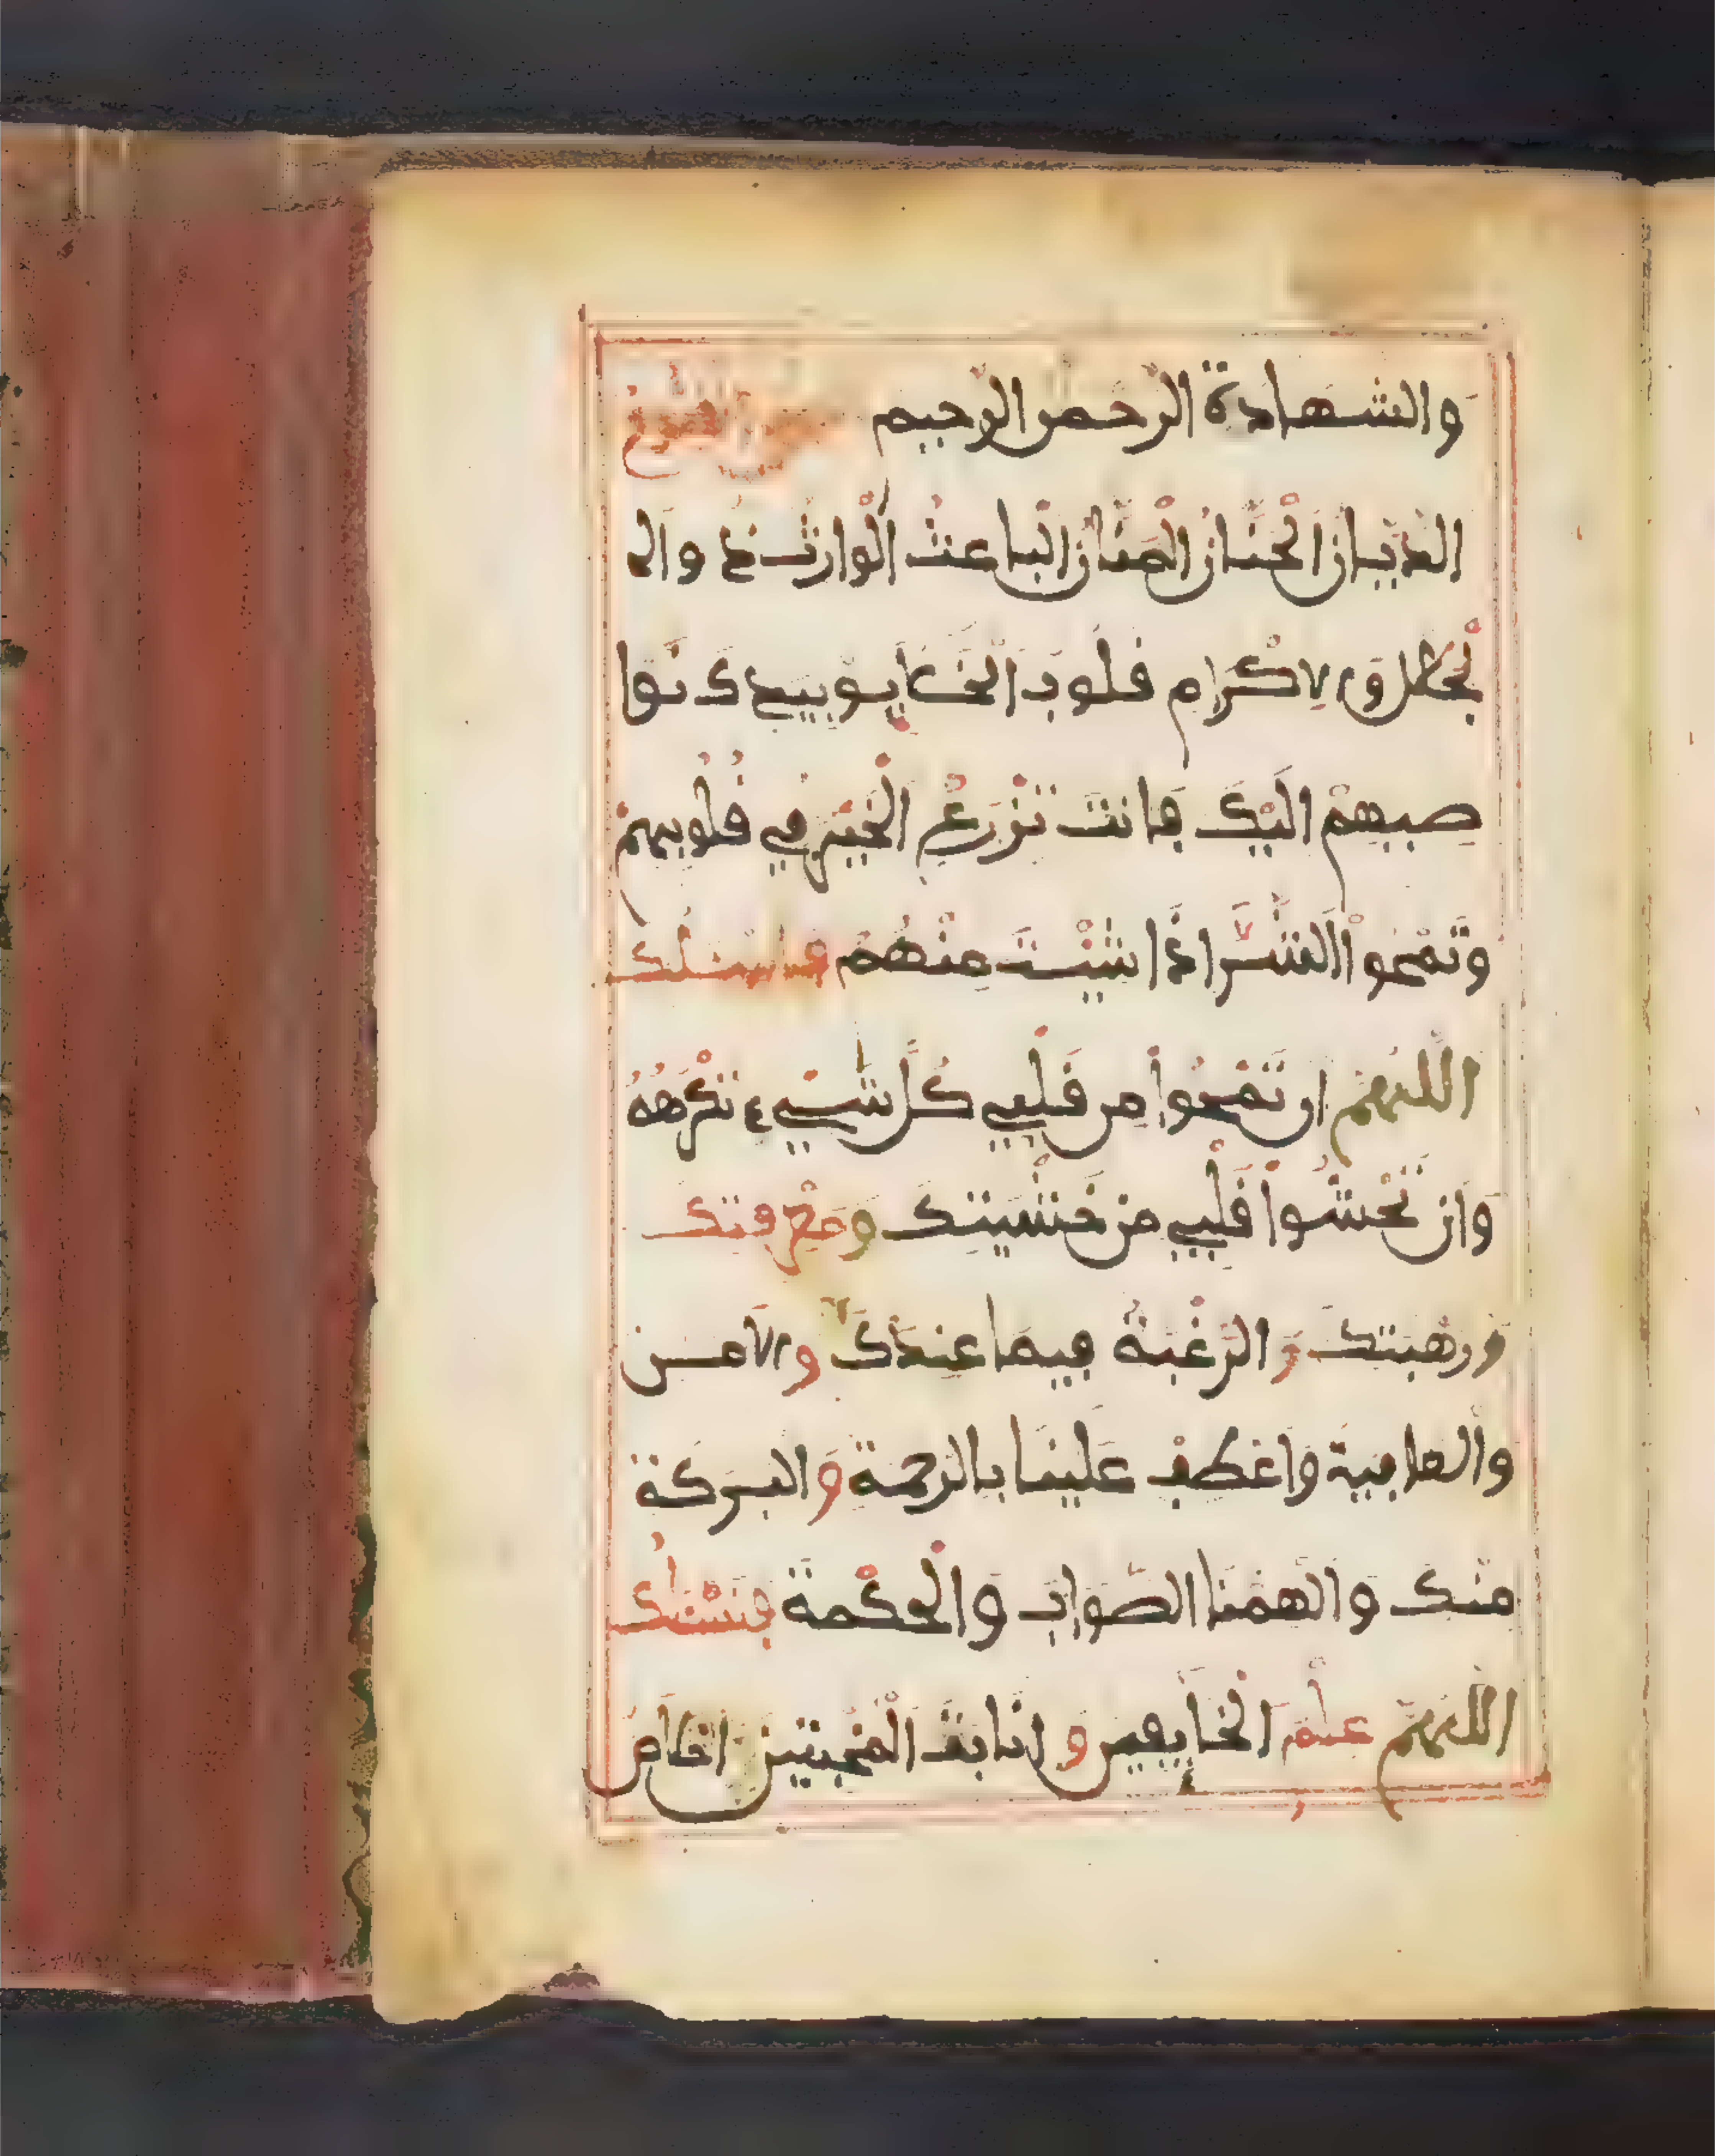 والشهادة الرحمن الرحيم
الديان الحنان المنان الباعث الوارث ذو ال
لجلال والاكرام قلوب الخلايق بيدك نوا
صيهم اليك فانت تزرع الخير في قلوبهم
وتمحوا الشر اذا شيت منهم فاسئلك
اللهم ان تمحوا من قلبي كل شيء تكرهه
وان تحشوا قلبي من خشيتك ومعرفتك
ورهبتك والرغبة فيما عندك والامن
والعافية واعطف علينا بالرحمة والبركة
منك والهمنا الصواب والحكمة فنسئلك
اللهم علم الخايفين وانابة المخبتين اخلاص